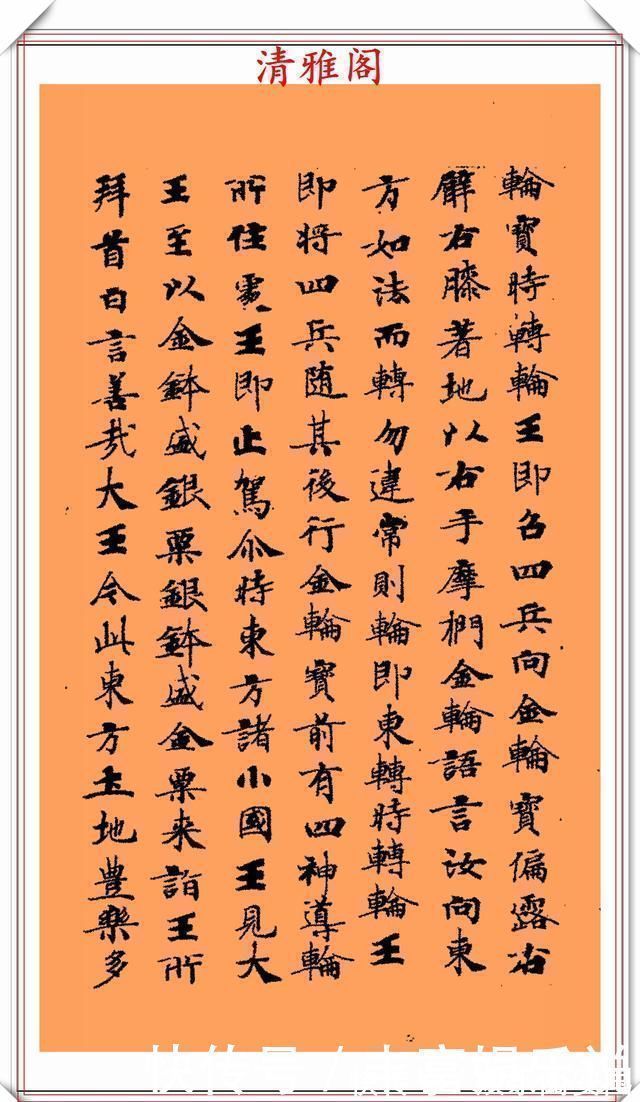 清雅阁
輪寶時轉輪王即召四兵向金輪寶偏露右
臂右膝著地以右手摩捫金輪語言汝向東
方如法而轉勿違常則輪即東轉時轉輪王
即將四兵随其後行金輪寶前有四神導輪
所住處王即止駕尒時東方諸小國王見大
王至以金鉢盛銀粟銀鉢盛金粟来詣王所
拜首白言善哉大王今此東方土地豊樂多